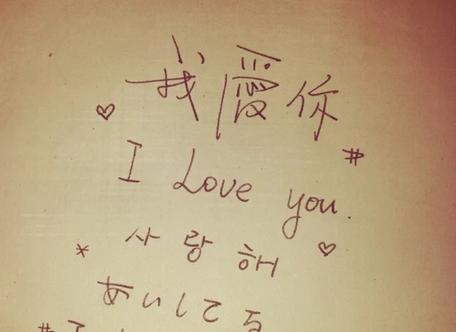 我愛你
I Love you.
사랑해
あいしてる